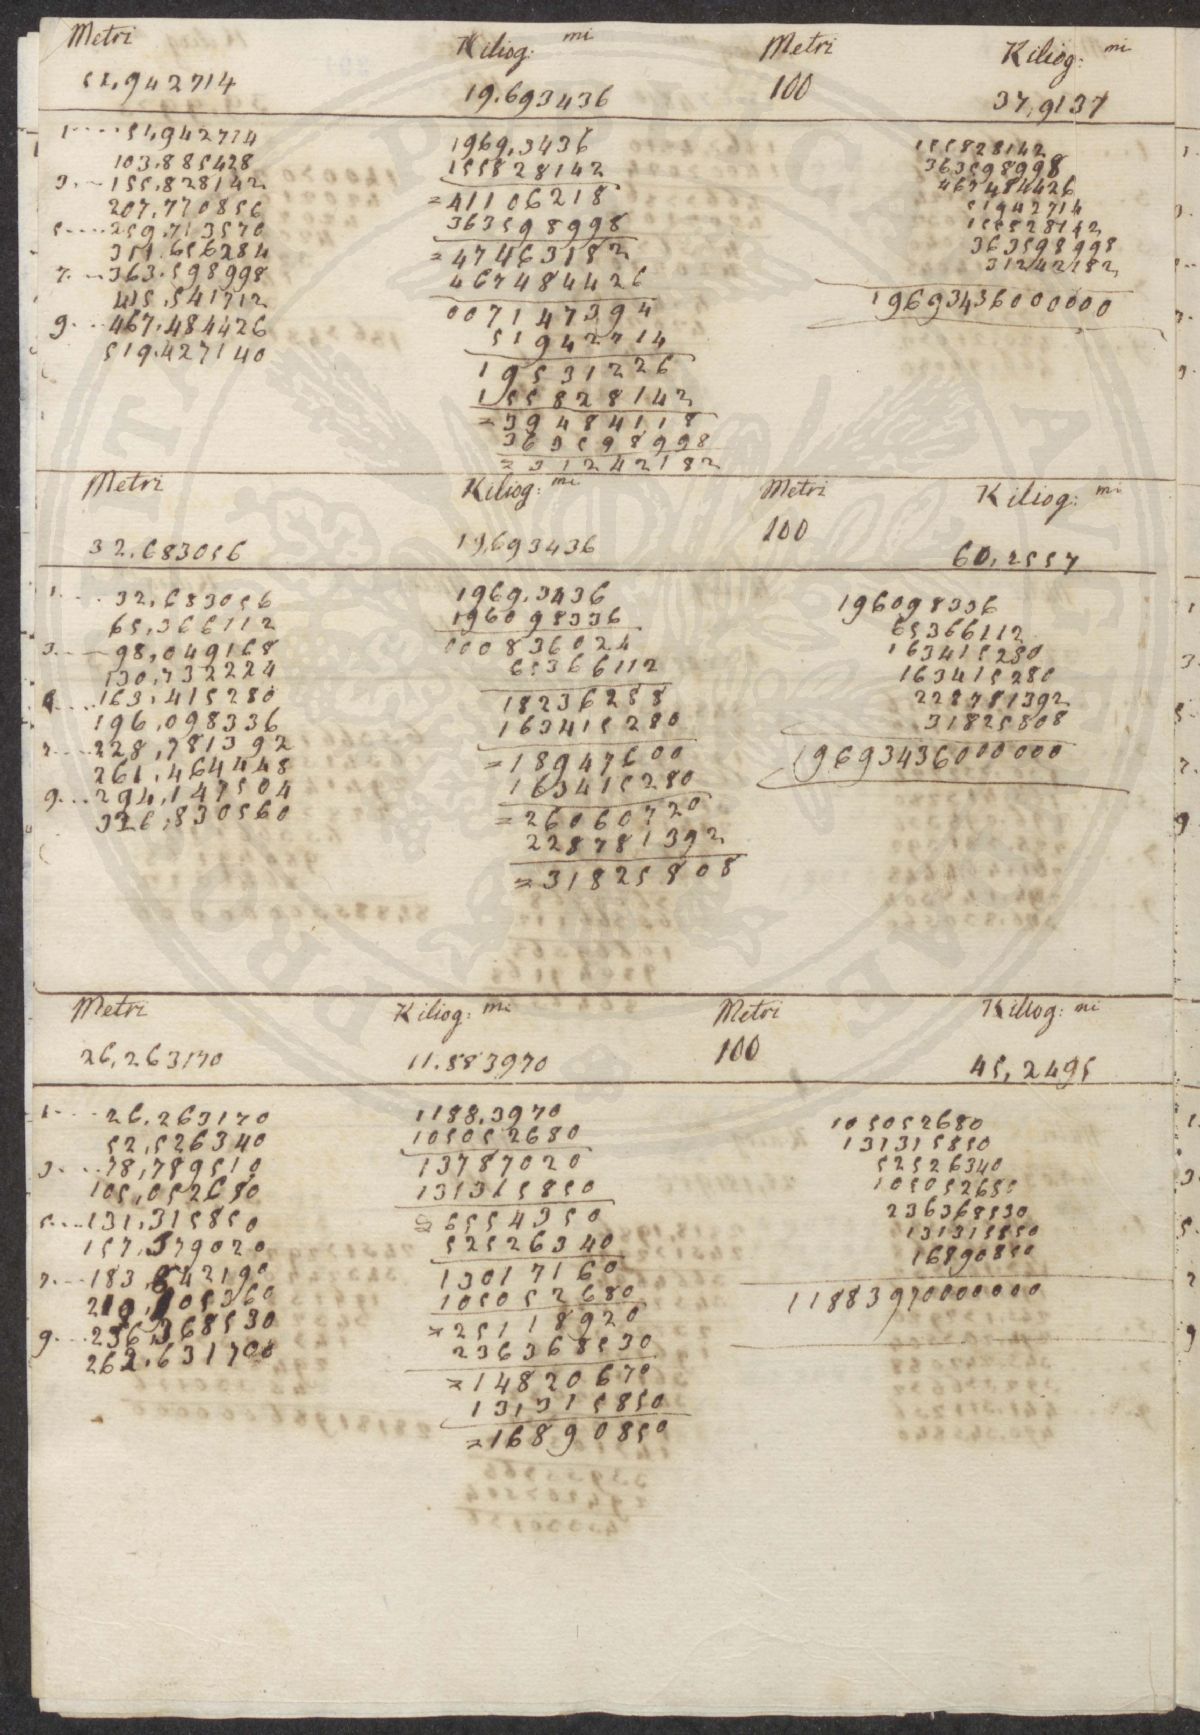 Metri Kiliog: mi Metri Kiliog: mi
51,942714 19,693436 100 37,9137
1.... 51,942714
103,885428
3... 155,828142
207,770856
5.... 259,713570
311,656284
7... 363,598998
415,541712
9... 467,484426
519,427140
1969,3436
155828142
=41106218
363598998
=47463182
467484426
007147394
51942714
19531226
155828142
=39484118
363598998
=31242182
155828142
363598998
467484426
51942714
155828142
363598998
31242182
19693436000000
Metri Kiliog: mi Metri Kiliog: mi
32,683056 19,693436 100 60,2557
1.... 32,683056
65,366112
3.... 98,049168
130,732224
163,415280
196,098336
7.... 228,781392
261,464448
9... 294,147504
326,830560
1969,3436
196098336
000836024
65366112
18236288
163415280
=18947600
163415280
=26060720
228781392
=31825808
196098336
65366112
163415280
163415280
228781392
31825808
19693436000000
Metri Kiliog: mi Metri Kiliog: mi
26,263170 11,883970 100 45,2495
1.... 26,263170
52,526340
3.... 78,789510
105,052680
5.... 131,315850
157,579020
7.... 183,842190
210,105360
9... 236,368530
262,631700
1188,3970
105052680
13787020
131315850
=6554350
52526340
13017160
105052680
=25118920
236368530
=14820670
131315850
=16890850
105052680
131315850
52526340
105052680
236368530
131315850
16890850
11883970000000